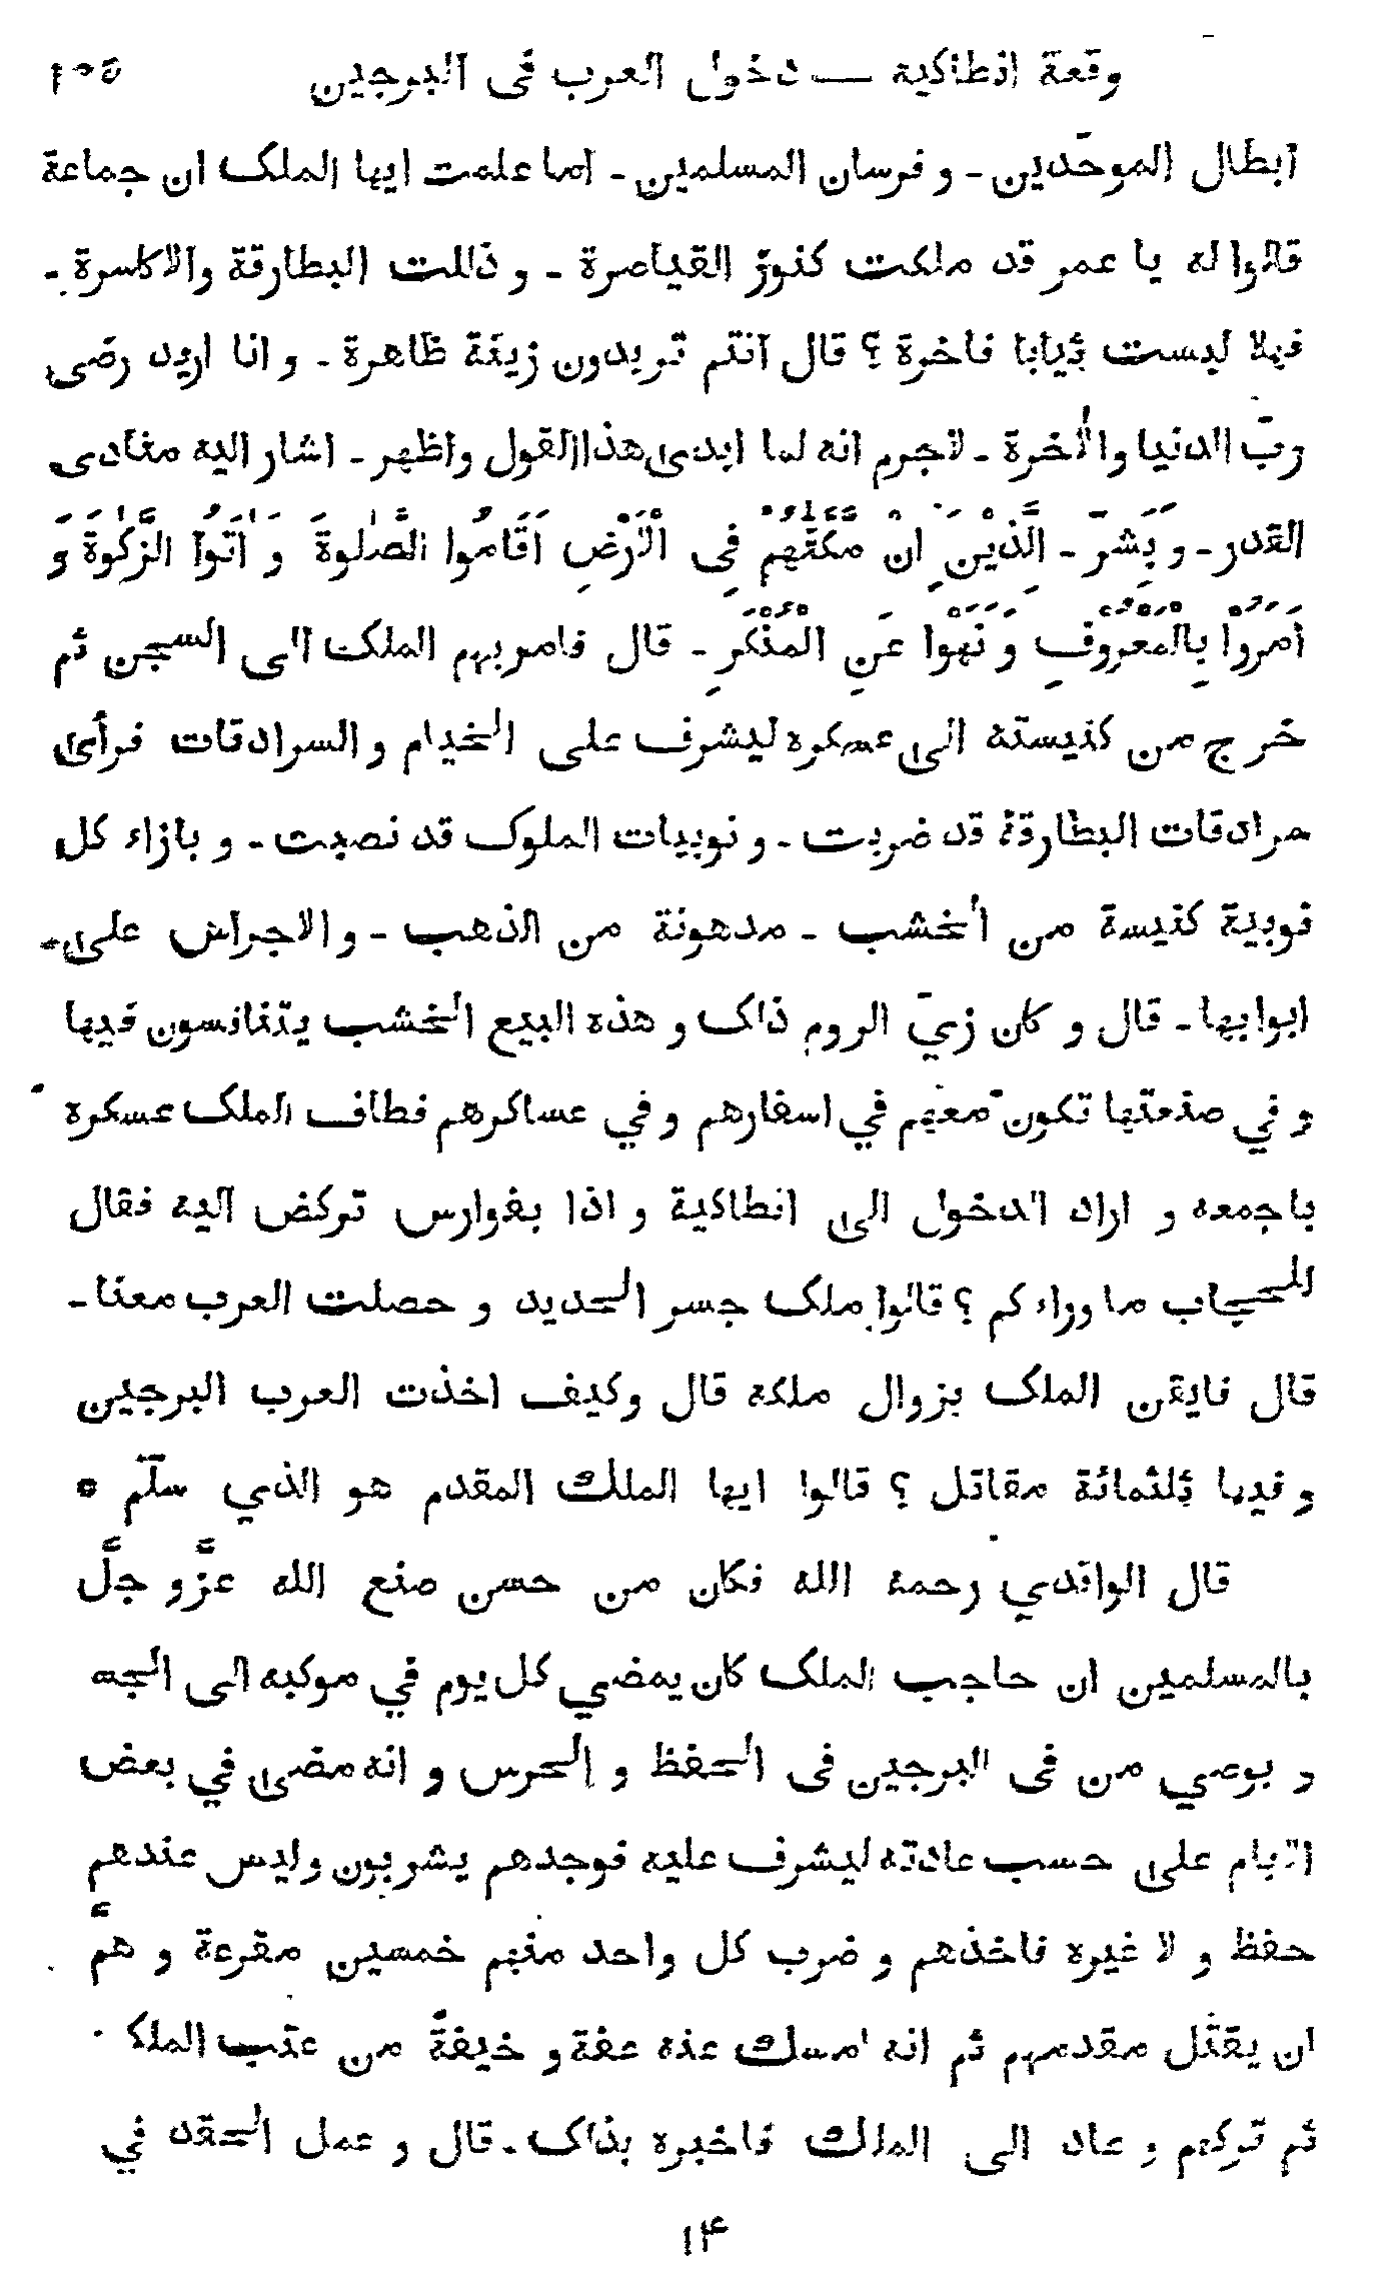 وقعة انطاكية — دخول العرب فى البرجين ١٠٥
ابطال الموحّدين - و فرسان المسلمين - اما علمت ايها الملک ان جماعة
قالوا له يا عمر قد ملكت كنوز القياصرة - و ذللت البطارقة والاكاسرة -
فهلا لبست ثيابا فاخرة ؟ قال انتم تريدون زينة ظاهرة - و انا اريد رضى
ربّ الدنيا والاٰخرة - لاجرم انه لما ابدى هذا القول واظهر - اشار اليه منادى
القدر - و بَشَّرَ - الَّذِيْنَ اِنْ مَكَّنّٰهُمْ فِى الْاَرْضِ اَقَامُوا الصَّلٰوةَ وَ اٰتَوُا الزَّكٰوةَ وَ
اَمَرُوْا بِالْمَعْرُوْفِ وَ نَهَوْا عَنِ الْمُنْكَرِ - قال فامر بهم الملک الى السجن ثم
خرج من كنيسته الى عسكره ليشرف على الخيام و السرادقات فرأى
سرادقات البطارقة قد ضربت - و نوبيات الملوک قد نصبت - و بازاء كل
نوبية كنيسة من الخشب - مدهونة من الذهب - و الاجراس على -
ابوابها - قال و كان زيّ الروم ذاک و هذه البيع الخشب يتنافسون فيها
و في صنعتها تكون معهم في اسفارهم و في عساكرهم فطاف الملک عسكره
باجمعه و اراد الدخول الى انطاكية و اذا بفوارس تركض اليه فقال
للحجاب ما وراءكم ؟ قالوا ملک جسر الحديد و حصلت العرب معنا -
قال فايقن الملک بزوال ملكه قال وكيف اخذت العرب البرجين
و فيها ثلثمائة مقاتل ؟ قالوا ايها الملك المقدم هو الذي سلّم *
قال الواقدي رحمة الله فكان من حسن صنع الله عزّ و جلّ
بالمسلمين ان حاجب الملک كان يمضي كل يوم في موكبه الى الجسر
و يوصي من فى البرجين فى الحفظ و الحرس و انه مضى في بعض
الايام على حسب عادته ليشرف عليه فوجدهم يشربون وليس عندهم
حفظ و لا غيره فاخذهم و ضرب كل واحد منهم خمسين مقرعة و همّ
ان يقتل مقدمهم ثم انه امسك عنه عفة و خيفةً من عتب الملک
ثم تركهم و عاد الى الملك فاخبره بذاک - قال و عمل الحقد في
١۴